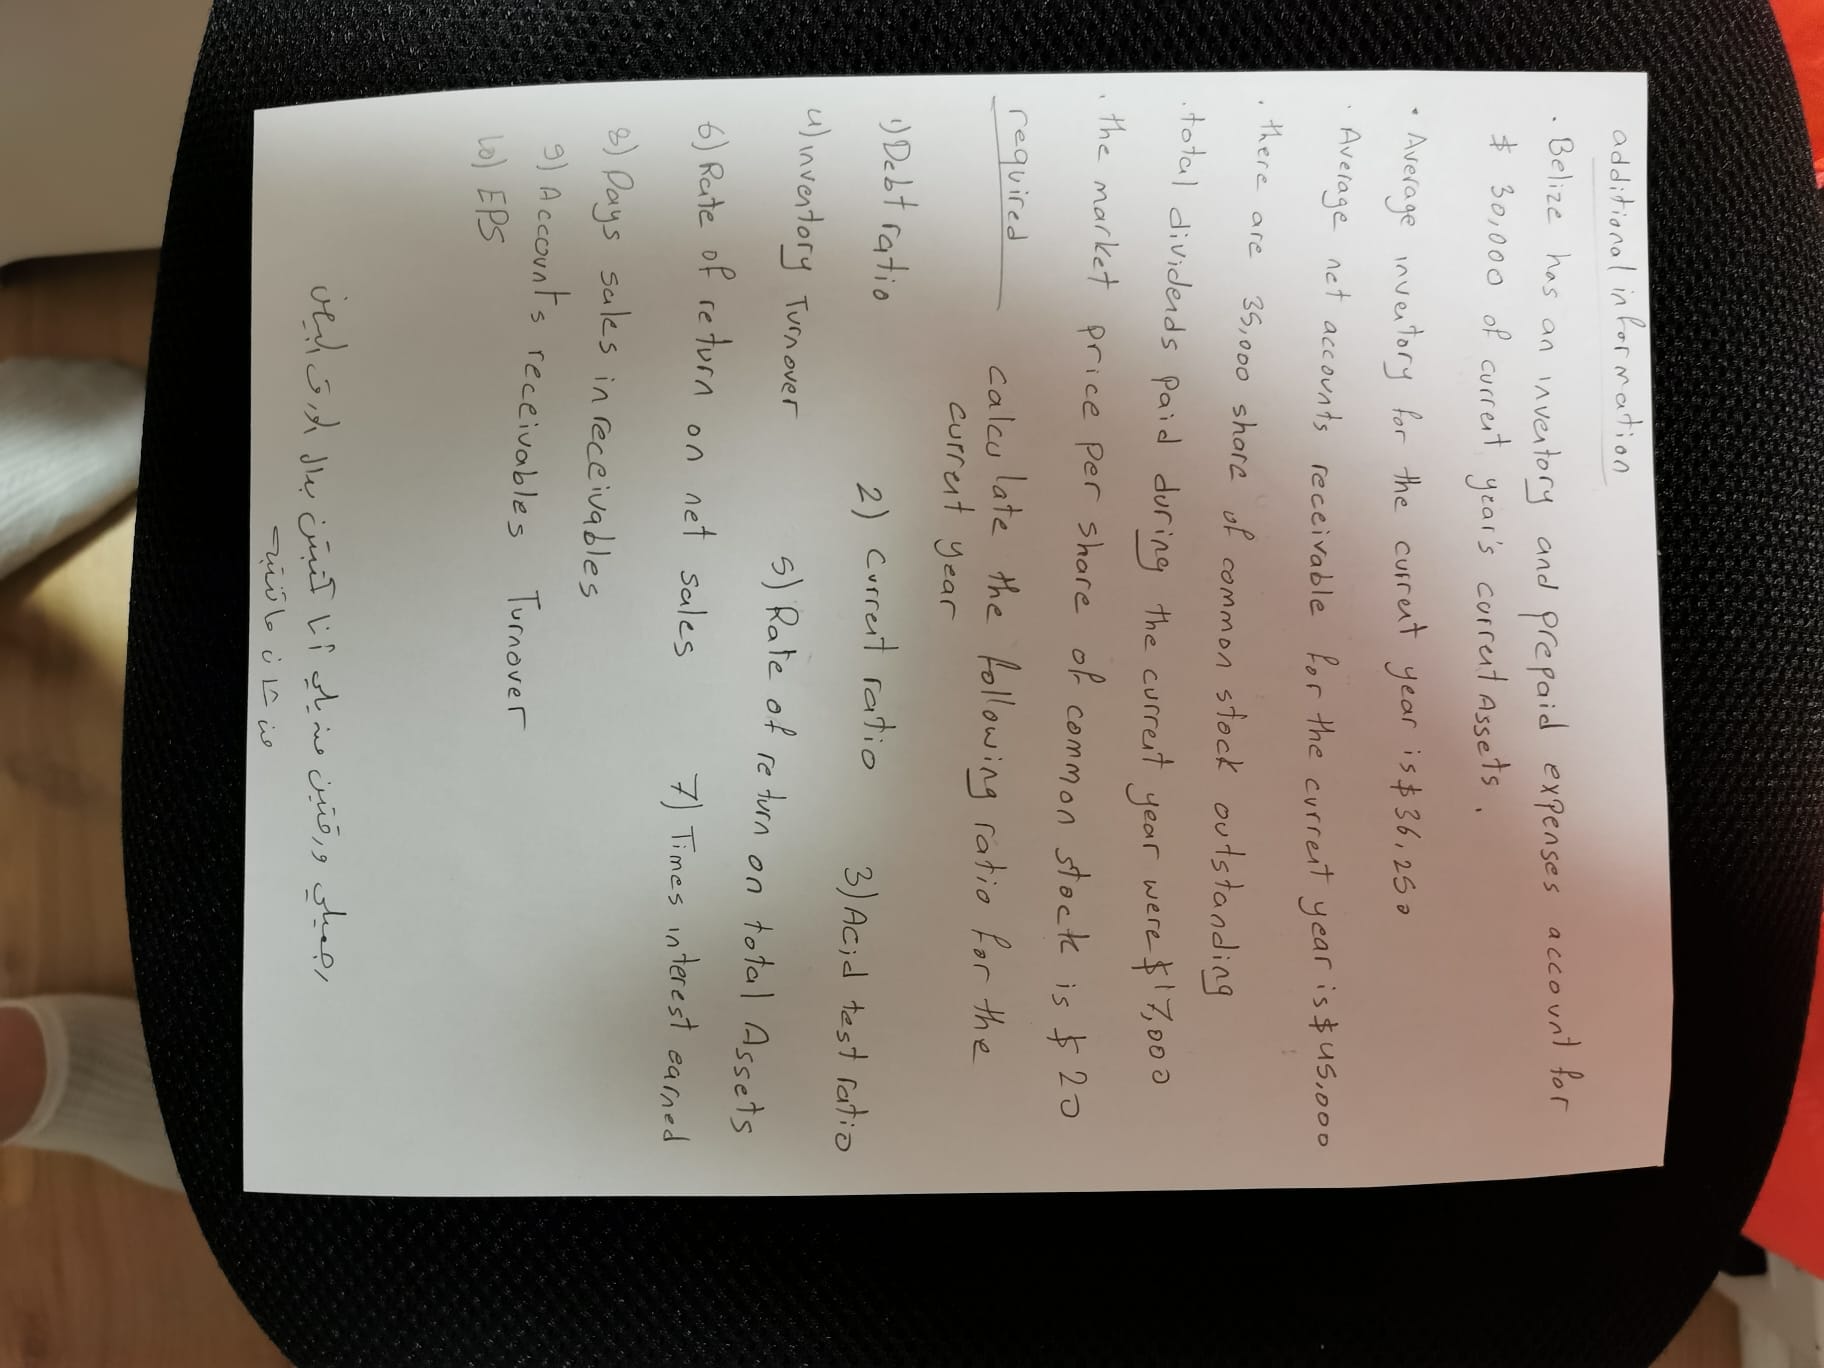 additional information
. Belize has an inventory and prepaid expenses account for
$ 30,000 of current year's current Assets.
. Average inventory for the current year is $ 36,250
. Average net accounts receivable for the current year is $ 45,000
. there are 35,000 share of common stock outstanding
. total dividends paid during the current year were $ 17,000
. the market price per share of common stock is $ 20
required calculate the following ratio for the
current year
1) Debt ratio 2) current ratio 3) Acid test ratio
4) inventory Turnover 5) Rate of return on total Assets
6) Rate of return on net sales 7) Times interest earned
8) Days sales in receivables
9) Accounts receivables Turnover
10) EPS